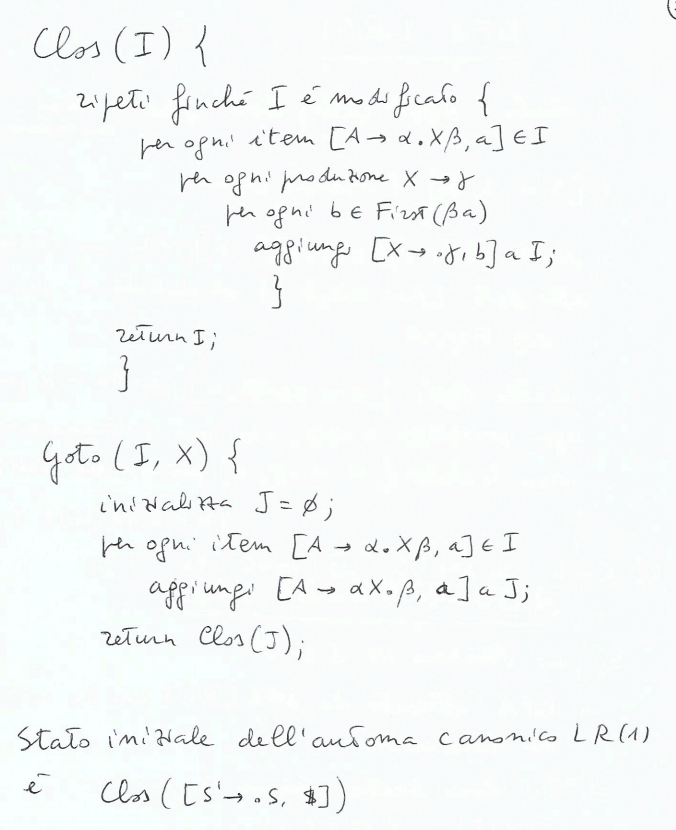 Clos (I) {
ripeti finché I é modificato {
per ogni item [A → α.Xβ, a] ∈ I
per ogni produzione X → γ
per ogni b ∈ First(βa)
aggiungi [X → .γ, b] a I;
}
return I;
}
Goto (I, X) {
inizializza J = ∅;
per ogni item [A → α.Xβ, a] ∈ I
aggiungi [A → αX.β, a] a J;
return Clos(J);
Stato iniziale dell'automa canonico LR(1)
é Clos ( [S' → .S, $])